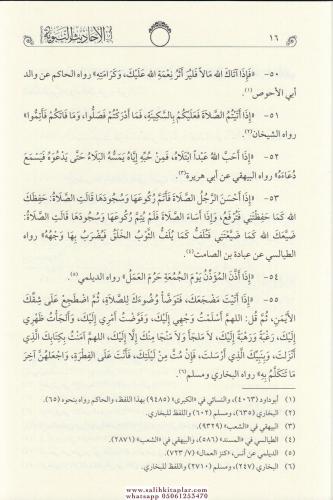 ١٦
الأحاديث النبوية
٥٠- «فَإِذَا آتَاكَ اللَّه مَالاً فَلْيُرَ أَثَرُ نِعْمَةِ اللَّه عَلَيْكَ، وَكَرَامَتِهِ» رواه الحاكم عن والد
أبي الأحوص(١).
٥١- «إِذَا أَتَيْتُمُ الصَّلاَةَ فَعَلَيْكُمْ بِالسَّكِينَةِ، فَمَا أَدْرَكْتُمْ فَصَلُّوا، وَمَا فَاتَكُمْ فَأَتِمُّوا»
رواه الشيخان(٢).
٥٢- «إِذَا أَحَبَّ اللَّهُ عَبْداً ابْتَلاَهُ، فَمِنْ حُبِّهِ إِيَّاهُ يَمَسُّهُ البَلاَءُ حَتَّى يَدْعُوَهُ فَيَسْمَعَ
دُعَاءَهُ» رواه البيهقي عن أبي هريرة(٣).
٥٣- «إِذَا أَحْسَنَ الرَّجُلُ الصَّلاَةَ فَأَتَمَّ رُكُوعَهَا وَسُجُودَهَا قَالَتِ الصَّلاَةُ: حَفِظَكَ
اللَّه كَمَا حَفِظْتَنِي فَتُرْفَعُ، وَإِذَا أَسَاءَ الصَّلاَةَ فَلَمْ يُتِمَّ رُكُوعَهَا وَسُجُودَهَا قَالَتِ الصَّلاَةُ:
ضَيَّعَكَ اللَّه كَمَا ضَيَّعْتَنِي فَتُلَفُّ كَمَا يُلَفُّ الثَّوْبُ الخَلَقُ فَيُضْرَبُ بِهَا وَجْهُهُ» رواه
الطيالسي عن عبادة بن الصامت(٤).
٥٤- «إِذَا أَذَّنَ المُؤَذِّنُ يَوْمَ الجُمُعَةِ حَرُمَ العَمَلُ» رواه الديلمي(٥).
٥٥- «إِذَا أَتَيْتَ مَضْجَعَكَ، فَتَوَضَّأْ وُضُوءَكَ لِلصَّلاَةِ، ثُمَّ اضْطَجِعْ عَلَى شِقِّكَ
الأَيْمَنِ، ثُمَّ قُل: اللهم أَسْلَمْتُ وَجْهِي إِلَيْكَ، وَفَوَّضْتُ أَمْرِي إِلَيْكَ، وَأَلْجَأْتُ ظَهْرِي
إِلَيْكَ، رَغْبَةً وَرَهْبَةً إِلَيْكَ، لاَ مَلْجَأَ وَلاَ مَنْجَا مِنْكَ إِلاَّ إِلَيْكَ، اللهم آمَنْتُ بِكِتَابِكَ الَّذِي
أَنْزَلتَ، وَبِنَبِيِّكَ الَّذِي أَرْسَلتَ، فَإِنْ مُتَّ مِنْ لَيْلَتِكَ، فَأَنْتَ عَلَى الفِطْرَةِ، وَاجْعَلهُنَّ آخِرَ
مَا تَتَكَلَّمُ بِهِ» رواه البخاري ومسلم(٦).
(١) أبو داود (٤٠٦٣)، والنسائي في «الكبرى» (٩٤٨٥) بهذا اللفظ، والحاكم رواه بنحوه (٦٥).
(٢) البخاري (٦٣٥)، مسلم (٦٠٢) واللفظ للبخاري.
(٣) البيهقي في «الشعب» (٩٣٢٩).
(٤) الطيالسي في «المسند» (٥٨٦)، والبيهقي في «الشعب» (٢٨٧١).
(٥) الديلمي عن أنس، «كنز العمال» (٧/٧٢٣).
(٦) البخاري (٢٤٧)، ومسلم (٢٧١٠) واللفظ للبخاري.
www.salihkitaplar.com
whatsapp 05061253470